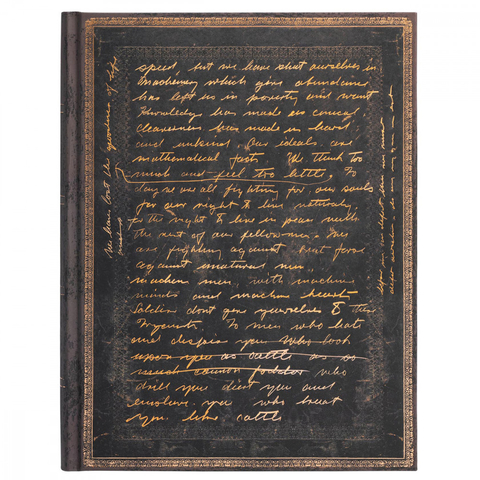 speed, but we have shut ourselves in
machinery which gives abundance
has left us in poverty and want
Knowledge has made us cynical
cleverness has made us hard
and unkind. Our ideals are
mathematical facts. We think too
much and feel too little. To
day we are all fighting for our souls
for our right to live naturally
for the right to live in peace with
the rest of our fellow-men.
are fighting against brut force
against unatural men
machine men, with machine
minds and machine hearts
Soldiers dont give yourselves to
Tyrants. To men who hate
and despise you who look
upon you as cattle as so
much cannon fodder who
drill you diet you and
enslave you who treat
you like cattle
We have lost the goodness of life